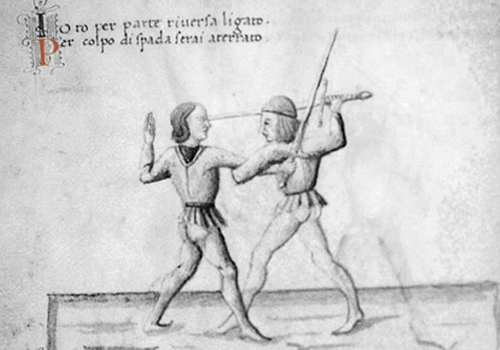 Io to per parte riversa ligato.
Per colpo di spada serai aterrato